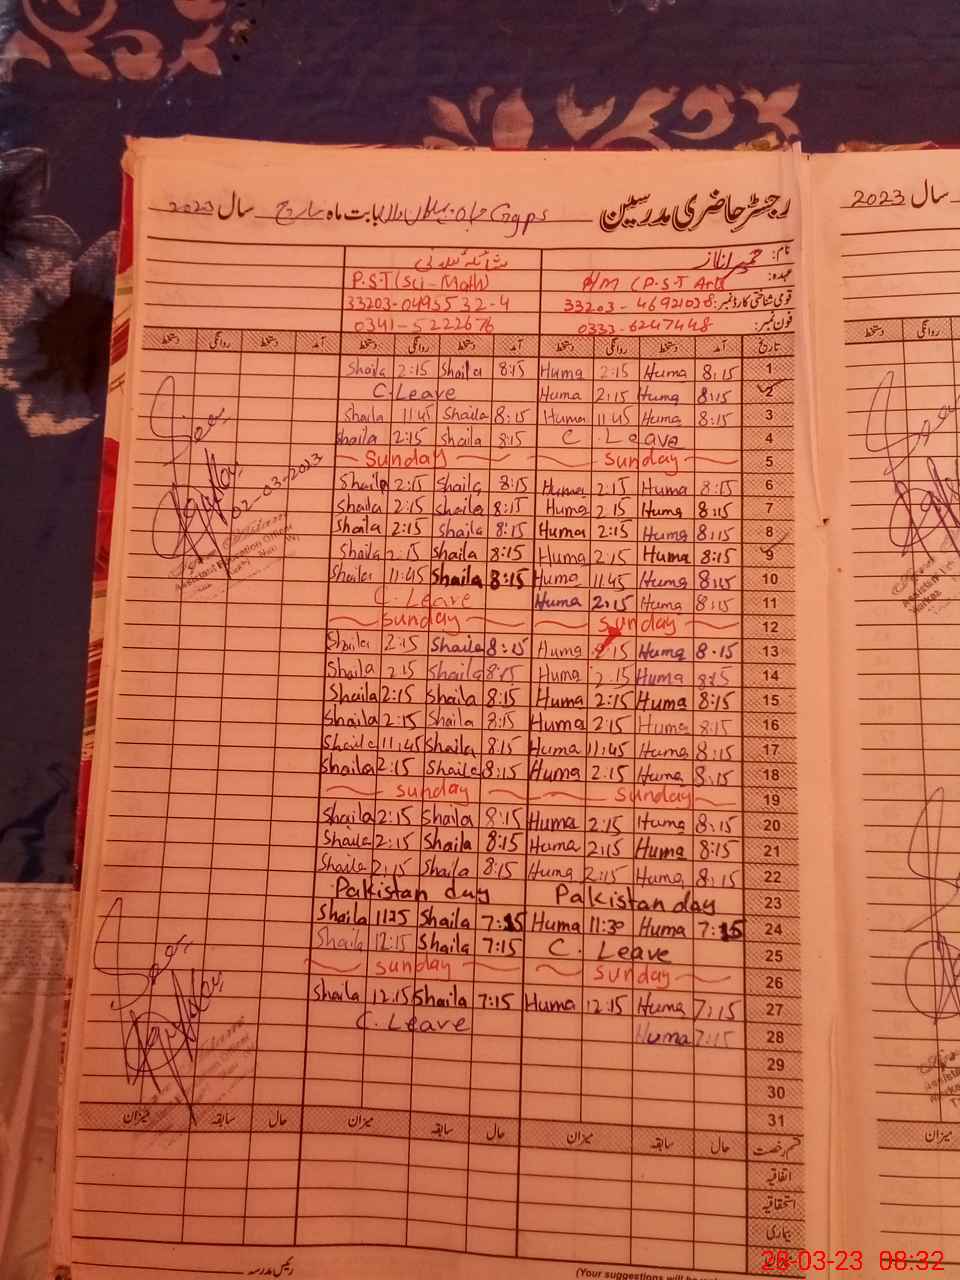 رجسٹر حاضری مدرسین Ggps بابت ماہ مارچ سال 2023
سال 2023
نام:
عہدہ: H/M (P.S.T Arts P.S.T (Sci-Math)
قومی شناختی کارڈ نمبر: 33203-0495532-4
فون نمبر: 0333-6247448 0341-5222676
تاریخ آمد دستخط روانگی دستخط آمد دستخط روانگی دستخط آمد دستخط روانگی دستخط
1 8:15 Huma 2:15 Huma 8:15 Shaila 2:15 Shaila
2 8:15 Huma 2:15 Huma C.Leave
3 8:15 Huma 11:45 Huma 8:15 Shaila 11:45 Shaila
4 C. Leave 8:15 Shaila 2:15 Shaila
5 Sunday Sunday
6 8:15 Huma 2:15 Huma 8:15 Shaila 2:15 Shaila
7 8:15 Huma 2:15 Huma 8:15 Shaila 2:15 Shaila
8 8:15 Huma 2:15 Huma 8:15 Shaila 2:15 Shaila
9 8:15 Huma 2:15 Huma 8:15 Shaila 2:15 Shaila
10 8:15 Huma 11:45 Huma 8:15 Shaila 11:45 Shaila
11 8:15 Huma 2:15 Huma C.Leave
12 Sunday Sunday
13 8:15 Huma Huma 8:15 Shaila 2:15 Shaila
14 8:15 Huma 2:15 Huma 8:15 Shaila 2:15 Shaila
15 8:15 Huma 2:15 Huma 8:15 Shaila 2:15 Shaila
16 8:15 Huma 2:15 Huma 8:15 Shaila 2:15 Shaila
17 8:15 Huma 11:45 Huma 8:15 Shaila 11:45 Shaila
18 8:15 Huma 2:15 Huma 8:15 Shaila 2:15 Shaila
19 Sunday Sunday
20 8:15 Huma 2:15 Huma 8:15 Shaila 2:15 Shaila
21 8:15 Huma 2:15 Huma 8:15 Shaila 2:15 Shaila
22 8:15 Huma 2:15 Huma 8:15 Shaila 2:15 Shaila
23 Pakistan day Pakistan day
24 7:15 Huma 11:30 Huma 7:15 Shaila 1125 Shaila
25 C. Leave 7:15 Shaila 12:15 Shaila
26 Sunday Sunday
27 7:15 Huma 12:15 Huma 7:15 Shaila 12:15 Shaila
28 7:15 Huma C.Leave
29
30
31
02-03-2023
قسم رخصت حال سابقہ میزان حال سابقہ میزان حال سابقہ میزان
میزان
اتفاقیہ
استحقاقیہ
بیماری
رئیس مدرسہ
(Your suggestions will be
28-03-23 08:32